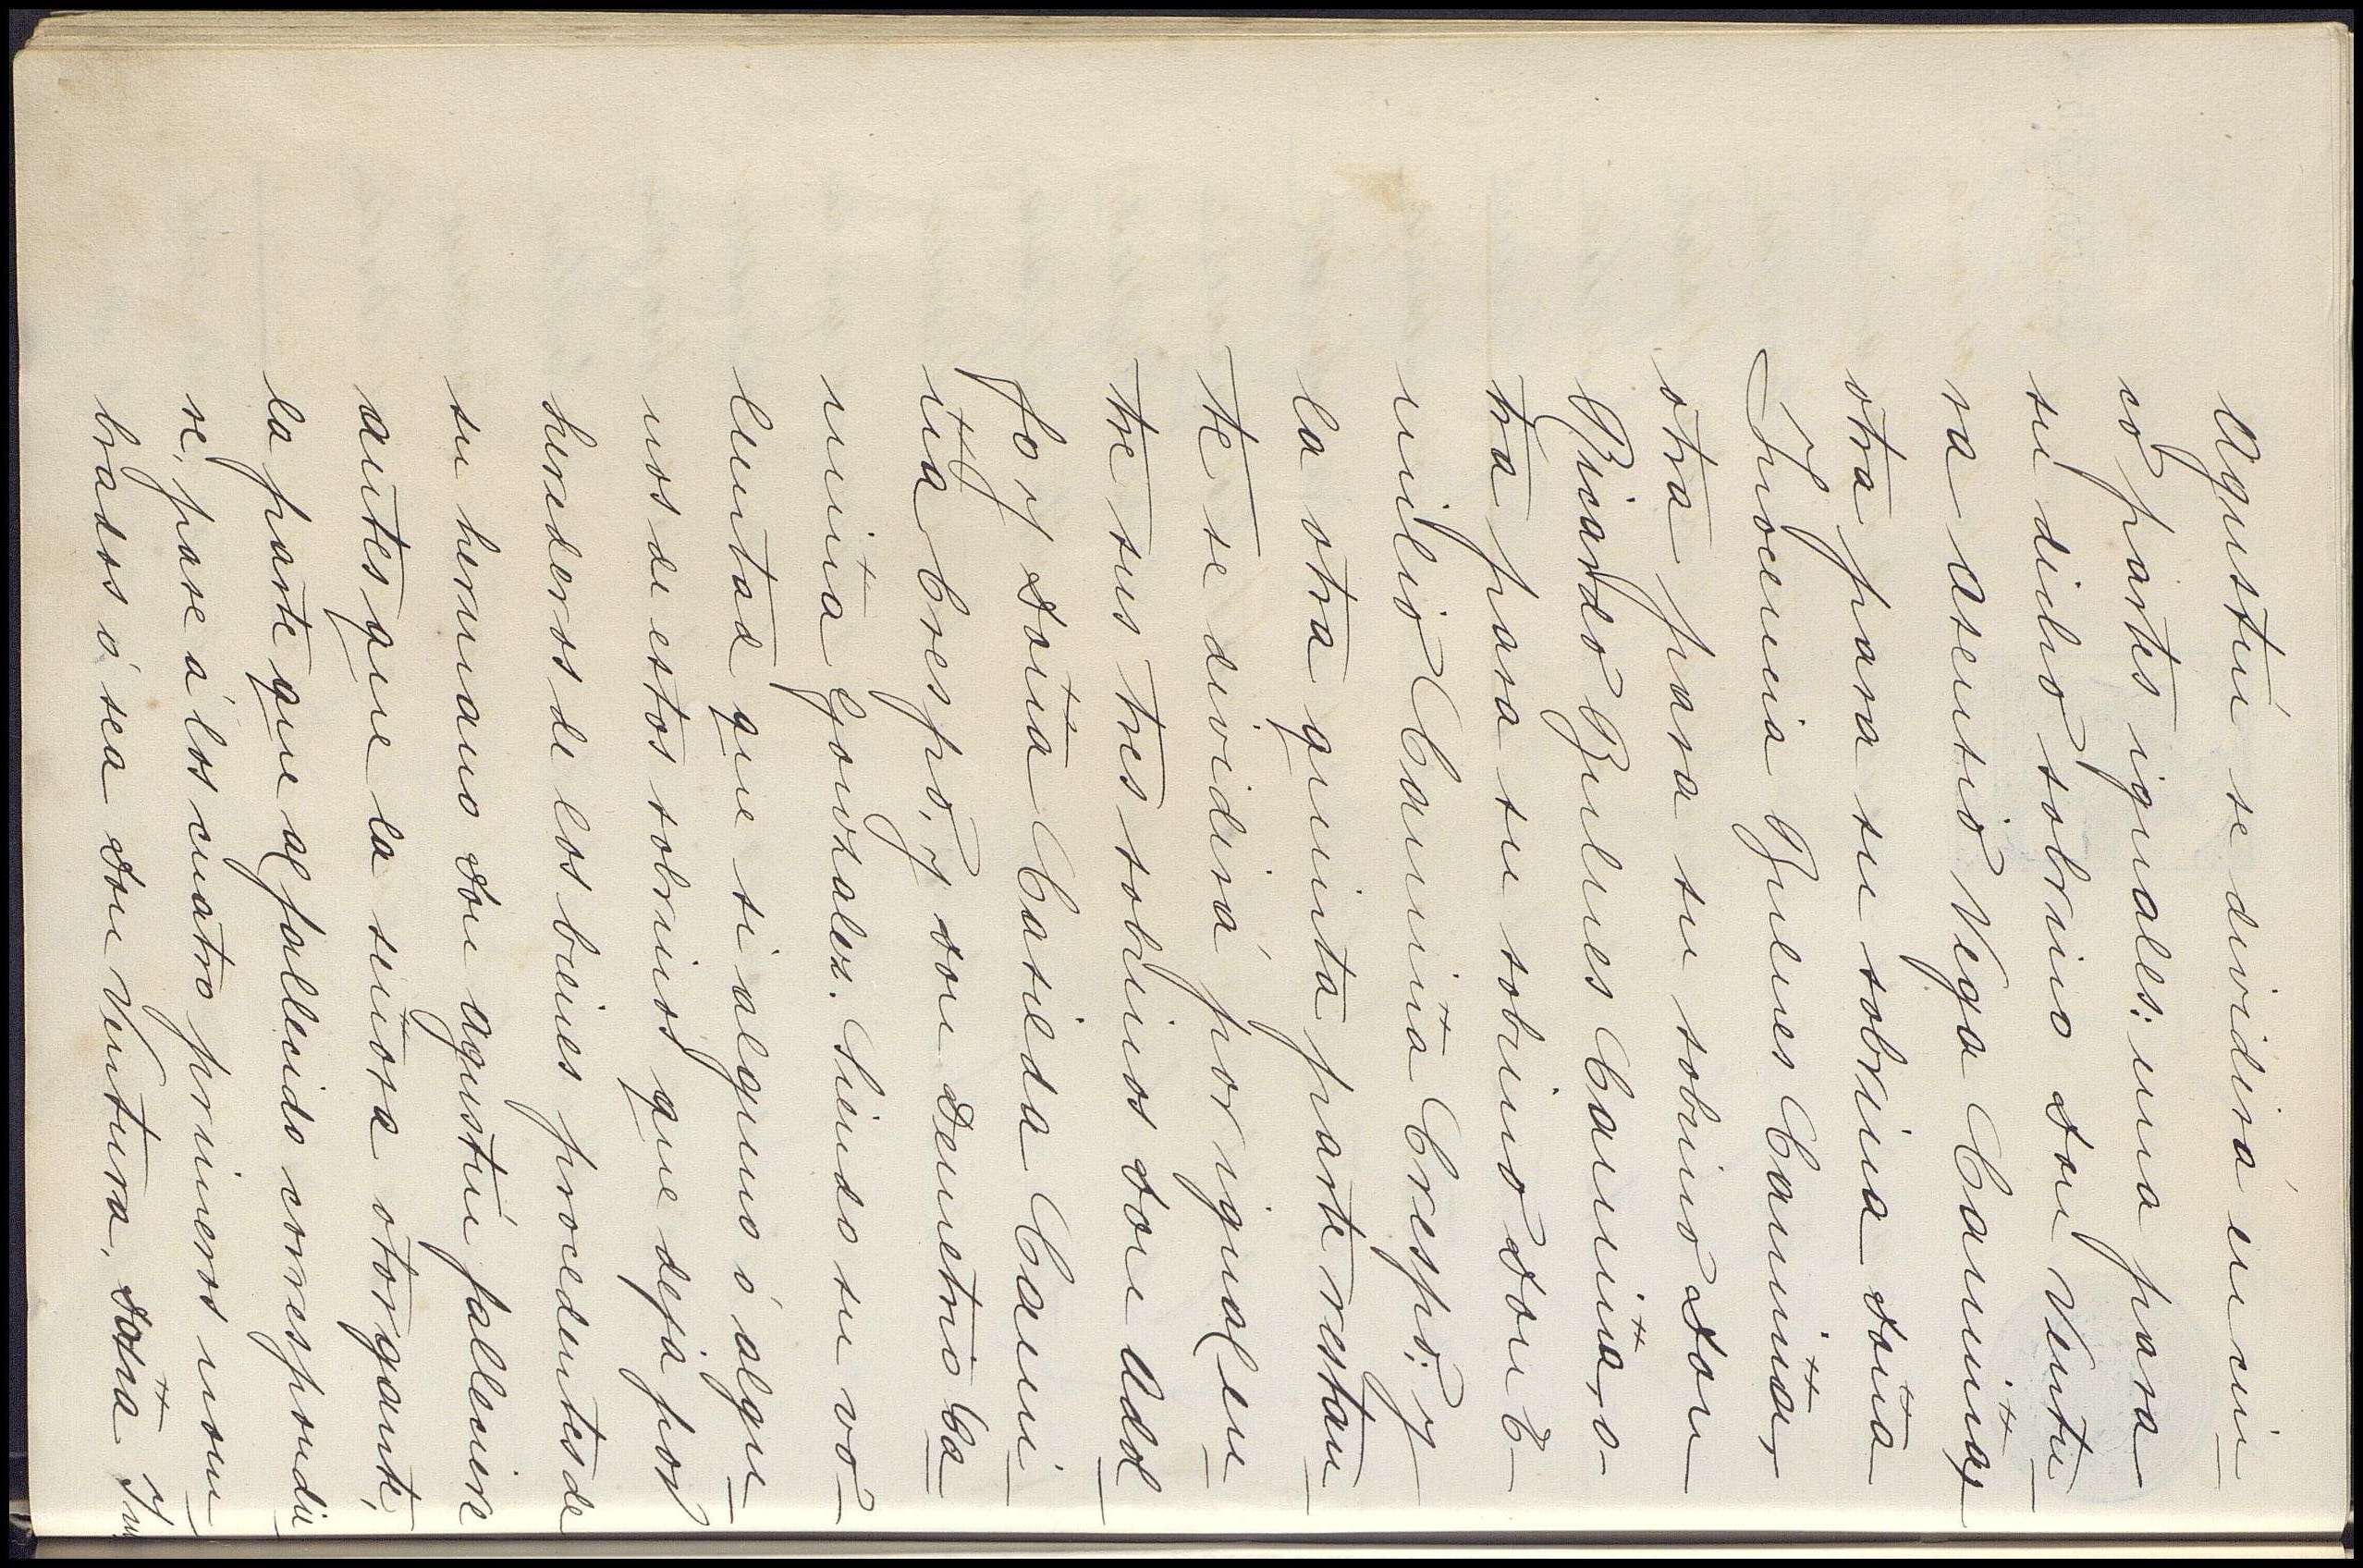 Agustín se dividirá en cin
co partes iguales: una para
su dicho sobrino don Ventu
ra Asensio Vega Camiña,
otra para su sobrina doña
Inocencia Gulnes Camiña,
otra para su sobrino don
Ricardo Gulnes Camiña, o-
tra para su sobrino don E-
milio Camiña Crespo; y
la otra quinta parte restan
te se dividirá por igual en
tre sus tres sobrinos don Adol
fo y doña Casilda Cami
ña Crespo, y don Demetrio Ca
miña Gonzalez. Siendo su vo-
luntad que si alguno ó algu
nos de estos sobrinos que deja por
herederos de los bienes procedentes de
su hermano don Agustín falleciere
antes que la señora otorgante,
la parte que al fallecido correspondie
se, pase á los cuatro primeros nom
brados ó sea don Ventura, doña Ino